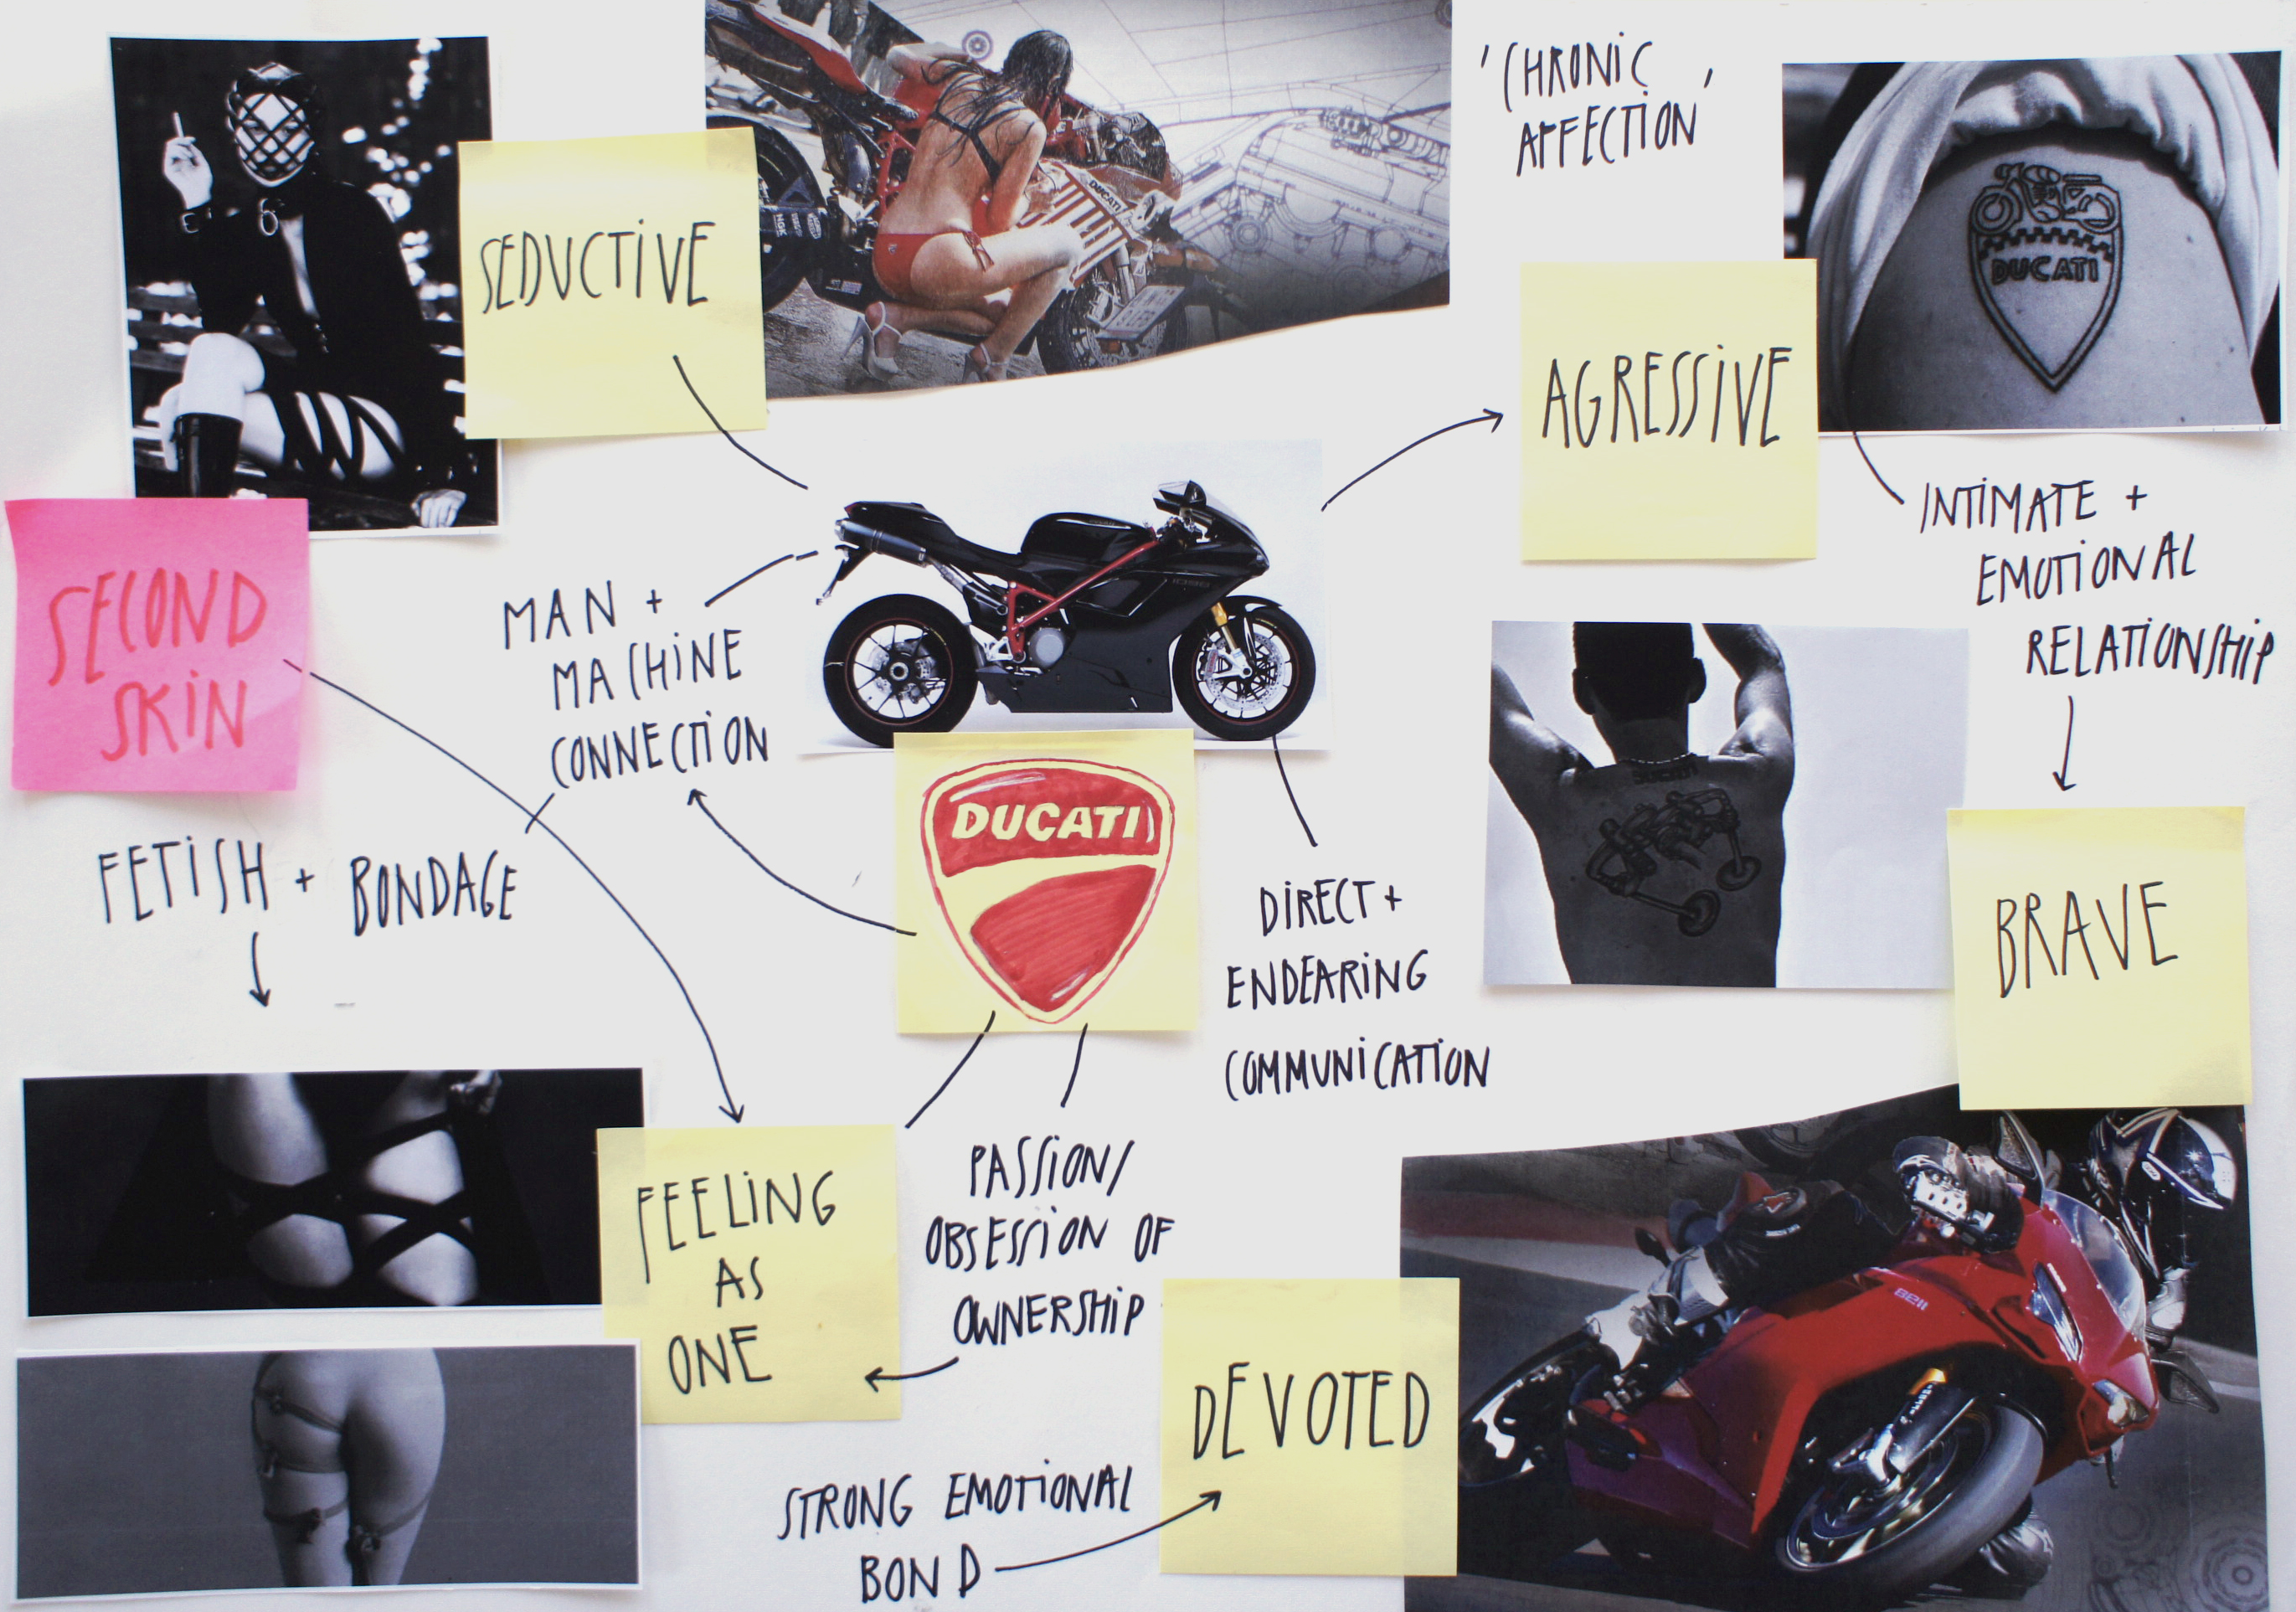 'CHRONIC
AFFECTION'
SEDUCTIVE
DUCATI
NGK
DUCATI
AGRESSIVE
INTIMATE +
EMOTIONAL
RELATIONSHIP
SECOND
SKIN
MAN +
MACHINE
CONNECTION
1098
DUCATI
DUCATI
FETISH + BONDAGE
DIRECT +
ENDEARING
COMMUNICATION
BRAVE
FEELING
AS
ONE
PASSION/
OBSESSION OF
OWNERSHIP
Bell
DEVOTED
STRONG EMOTIONAL
BOND